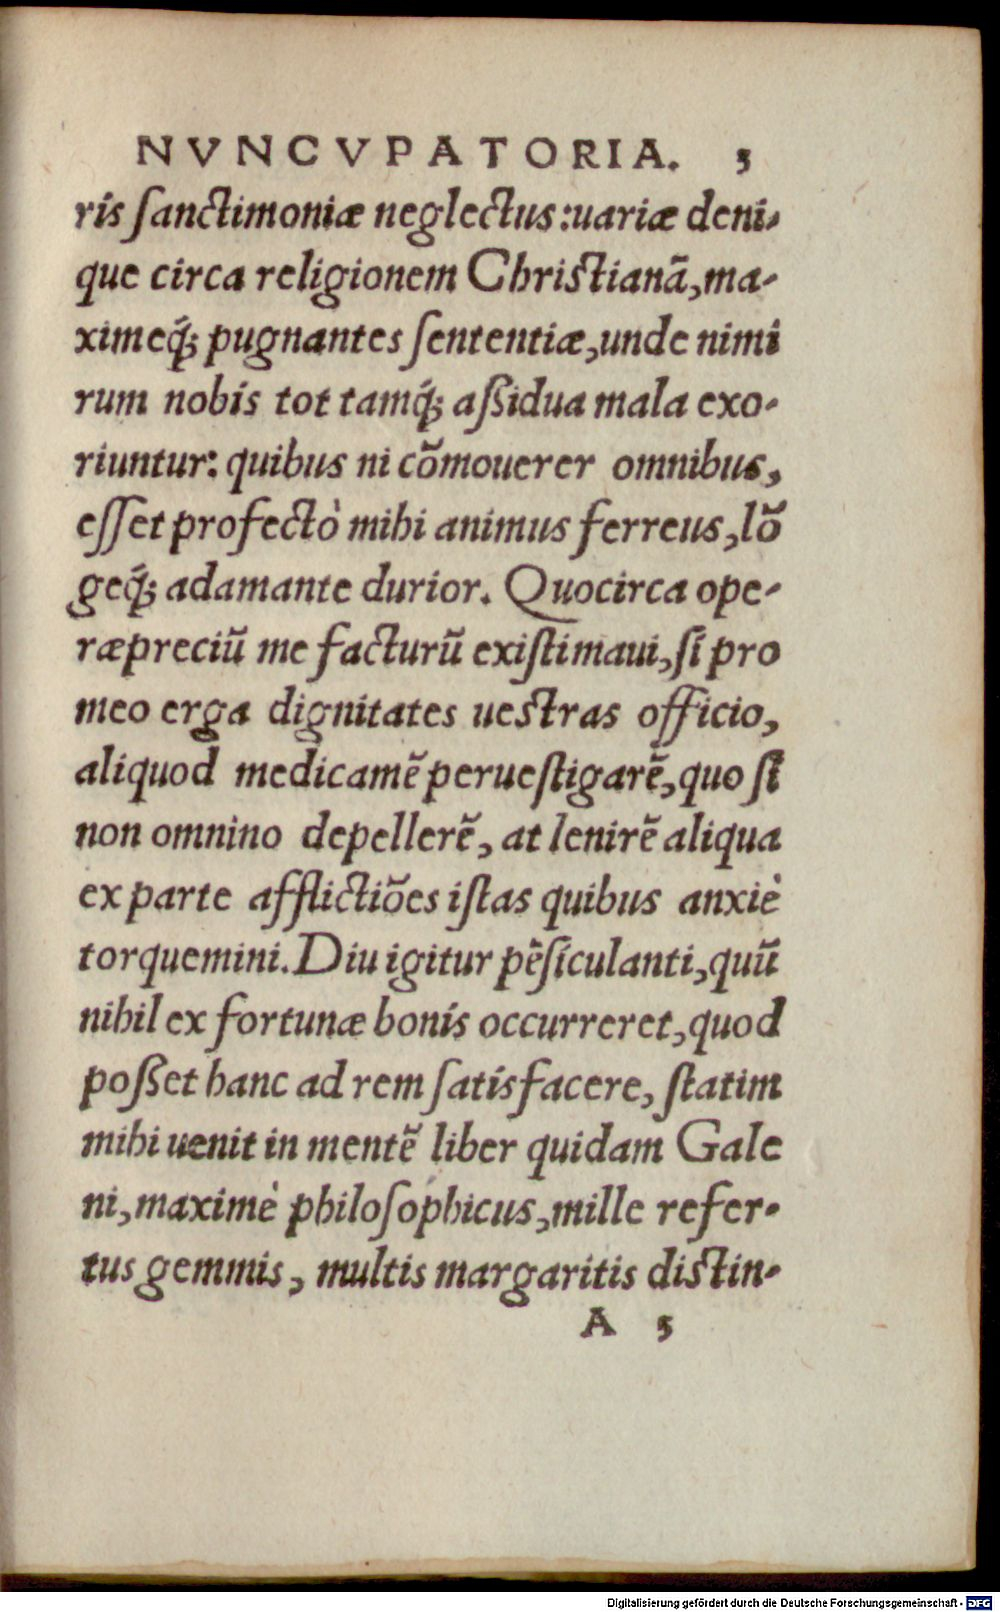 NVNCVPATORIA. 5
ris ſanctimoniæ neglectus:uariæ deni-
que circa religionem Christianã,ma-
ximeq́; pugnantes ſententiæ,unde nimi
rum nobis tot tamq́; aßidua mala exo-
riuntur: quibus ni cõmouerer omnibus,
eſſet profectò mihi animus ferreus,lõ
geq́; adamante durior. Quocirca ope-
ræpreciũ me facturũ exiſtimaui,ſi pro
meo erga dignitates uestras officio,
aliquod medicamẽ perueſtigarẽ,quo ſi
non omnino depellerẽ, at lenirẽ aliqua
ex parte afflictiões iſtas quibus anxiè
torquemini. Diu igitur pẽſiculanti,quũ
nihil ex fortunæ bonis occurreret,quod
poßet hanc ad rem ſatisfacere, ſtatim
mihi uenit in mentẽ liber quidam Gale
ni,maximè philoſophicus,mille refer-
tus gemmis, multis margaritis distin-
A 5
Digitalisierung gefördert durch die Deutsche Forschungsgemeinschaft - DFG